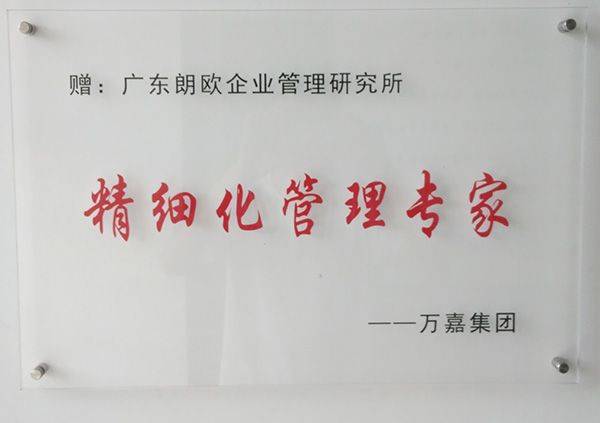 赠：广东朗欧企业管理研究所
精细化管理专家
——万嘉集团